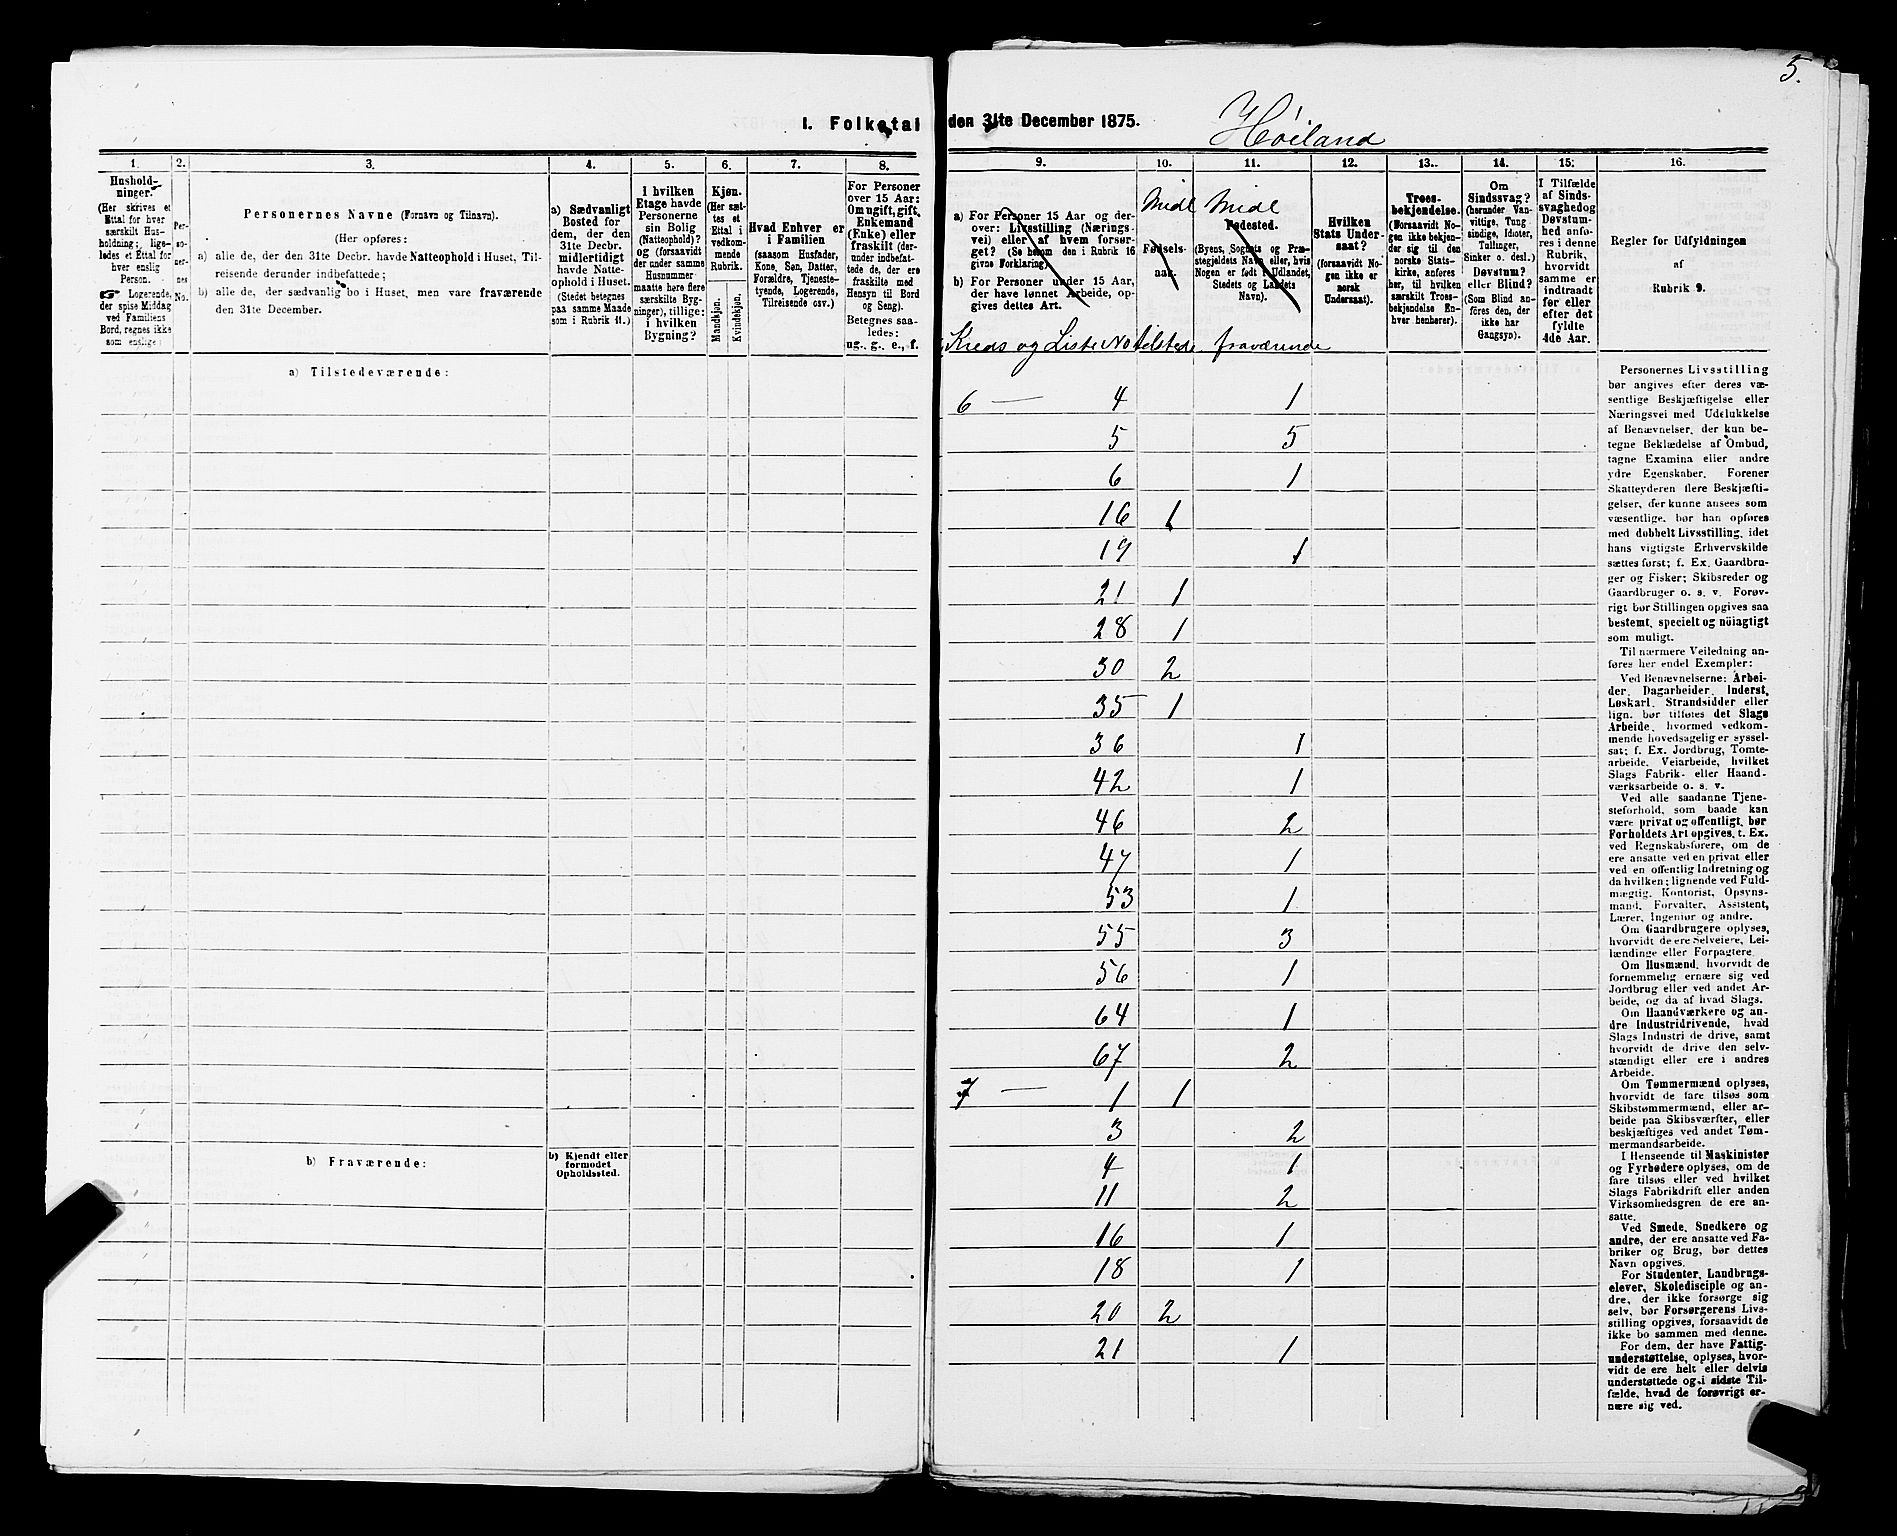 5.
I. Folketal den 31te December 1875.
Høiland
1. 2. 3. 4. 5. 6. 7. 8.
Hushold-
ninger.
(Her skrives et
Ettal for hver
særskilt Hus-
holdning; lige-
ledes et Ettal for
hver enslig
Person.
☞ Logerende,
der spise Middag
ved Familiens
Bord, regnes ikke
som enslige.
Per-
so-
ner-
nes
No.
Personernes Navne (Fornavn og Tilnavn).
(Her opføres:
a) alle de, der den 31te Decbr. havde Natteophold i Huset, Til-
reisende derunder indbefattede;
b) alle de, der sædvanlig bo i Huset, men vare fraværende
den 31te December.
a) Sædvanligt
Bosted for
dem, der den
31te Decbr.
midlertidigt
havde Natte-
ophold i Huset.
(Stedet betegnes
paa samme Maade
som i Rubrik 11.)
I hvilken
Etage havde
Personerne
sin Bolig
(Natteophold)?
og (forsaavidt
der under samme
Husnummer
maatte høre flere
særskilte Byg-
ninger), tillige:
i hvilken
Bygning?
Kjøn.
(Her sæt-
tes et
Ettal i
vedkom-
mende
Rubrik.
Mandkjøn.
Kvindekjøn.
Hvad Enhver er
i Familien
(saasom Husfader,
Kone, Søn, Datter,
Forældre, Tjeneste-
tyende, Logerende,
Tilreisende osv.)
For Personer
over 15 Aar:
Om ugift, gift,
Enkemand
(Enke) eller
fraskilt (der-
under indbefat-
tede de, der ere
fraskilte med
Hensyn til Bord
og Seng).
Betegnes saa-
ledes:
ug., g., e., f.
a) Tilstedeværende:
b) Fraværende:
b) Kjendt eller
formodet
Opholdssted.
9. 10. 11. 12. 13. 14. 15. 16.
a) For Personer 15 Aar og der-
over: Livsstilling (Nærings-
vei) eller af hvem forsør-
get? (Se herom den i Rubrik 16
givne Forklaring).
b) For Personer under 15 Aar,
der have lønnet Arbeide, op-
gives dettes Art.
Midl
Fødsels-
aar.
Midl
Fødested.
(Byens, Sognets og Præ-
stegjeldets Navn eller, hvis
Nogen er født i Udlandet,
Stedets og Landets
Navn).
Hvilken
Stats Under-
saat?
(forsaavidt No-
gen ikke er
norsk
Undersaat).
Troes-
bekjendelse.
(Forsaavidt No-
gen ikke bekjen-
der sig til den
norske Stats-
kirke, anføres
her, til hvilken
særskilt Troes-
bekjendelse En-
hver henhører).
Om
Sindssvag?
(herunder Van-
vittige, Tung-
sindige, Idioter,
Tullinger,
Sinker o. desl.)
Døvstum?
eller Blind?
(Som Blind an-
føres den, der
ikke har
Gangsyn).
I Tilfælde
af Sinds-
svaghed og
Døvstum-
hed anfø-
res i denne
Rubrik,
hvorvidt
samme er
indtraadt
før eller
efter det
fyldte
4de Aar.
Regler for Udfyldningen
af
Rubrik 9.
Kreds og Liste No tilstede fraværende
6 — 4 1
5 5
6 1
16 1
19 1
21 1
28 1
30 2
35 1
36 1
42 1
46 2
47 1
53 1
55 3
56 1
64 1
67 2
7 — 1 1
3 2
4 1
11 2
16 1
18 1
20 2
21 1
Personernes Livsstilling
bør angives efter deres væ-
sentlige Beskjæftigelse eller
Næringsvei med Udelukkelse
af Benævnelser, der kun be-
tegne Beklædelse af Ombud,
tagne Examina eller andre
ydre Egenskaber. Forener
Skatteyderen flere Beskjæfti-
gelser, der kunne ansees som
væsentlige, bør han opføres
med dobbelt Livsstilling, idet
hans vigtigste Erhvervskilde
sættes først; f. Ex. Gaardbru-
ger og Fisker; Skibsreder og
Gaardbruger o. s. v. Forøv-
rigt bør Stillingen opgives saa
bestemt, specielt og nöiagtigt
som muligt.
Til nærmere Veiledning an-
føres her endel Exempler:
Ved Benævnelserne: Arbei-
der, Dagarbeider, Inderst,
Løskarl, Strandsidder eller
lign. bør tilføies det Slags
Arbeide, hvormed vedkom-
mende hovedsagelig er syssel-
sat; f. Ex. Jordbrug, Tomte-
arbeide, Veiarbeide, hvilket
Slags Fabrik- eller Haand-
værksarbeide o. s. v.
Ved alle saadanne Tjene-
steforhold, som baade kan
være privat og offentligt, bør
Forholdets Art opgives, t. Ex.
ved Regnskabsførere, om de
ere ansatte ved en privat eller
ved en offentlig Indretning og
da hvilken; lignende ved Fuld-
mægtig, Kontorist, Opsyns-
mand, Forvalter, Assistent,
Lærer, Ingeniør og andre.
Om Gaardbrugere oplyses,
hvorvidt de ere Selveiere, Lei-
lændinge eller Forpagtere.
Om Husmænd, hvorvidt de
fornemmelig ernære sig ved
Jordbrug eller ved andet Ar-
beide, og da af hvad Slags.
Om Haandværkere og an-
dre Industridrivende, hvad
Slags Industri de drive, samt
hvorvidt de drive den selv-
stændigt eller ere i andres
Arbeide.
Om Tømmermænd oplyses,
hvorvidt de fare tilsøs som
Skibstømmermænd, eller ar-
beide paa Skibsværfter, eller
beskjæftiges ved andet Tøm-
mermandsarbeide.
I Henseende til Maskinister
og Fyrbødere oplyses, om de
fare tilsøs eller ved hvilket
Slags Fabrikdrift eller anden
Virksomhedsgren de ere an-
satte.
Ved Smede, Snedkere og
andre, der ere ansatte ved Fa-
briker og Brug, bør dettes
Navn opgives.
For Studenter, Landbrugs-
elever, Skoledisciple og an-
dre, der ikke forsørge sig
selv, bør Forsørgerens Livs-
stilling opgives, forsaavidt de
ikke bo sammen med denne.
For dem, der have Fattig-
understøttelse, oplyses, hvor-
vidt de ere helt eller delvis
understøttede og i sidste Til-
fælde, hvad de forøvrigt er-
nære sig ved.